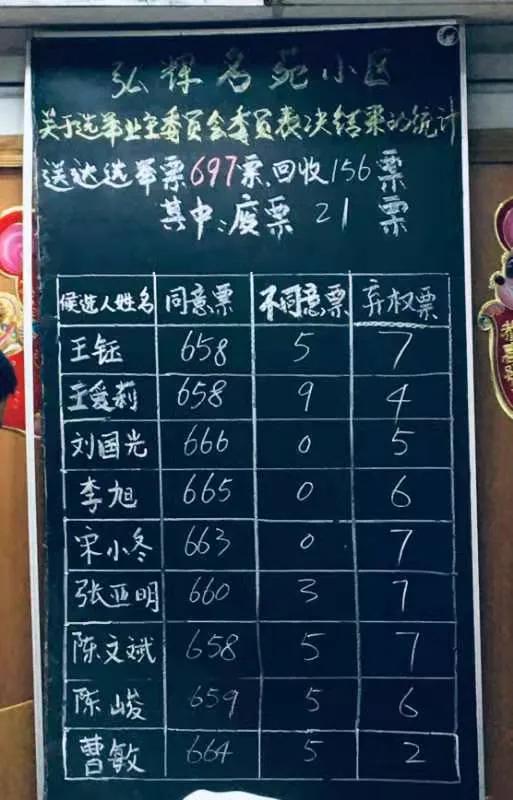 弘辉名苑小区
关于选举业主委员会委员表决结果的统计
送达选举票697票，回收156票
其中：废票 21 票
候选人姓名 同意票 不同意票 弃权票
王钰 658 5 7
王爱莉 658 9 4
刘国光 666 0 5
李旭 665 0 6
宋小冬 663 0 7
张亚明 660 3 7
陈文斌 658 5 7
陈峻 659 5 6
曹敏 664 5 2